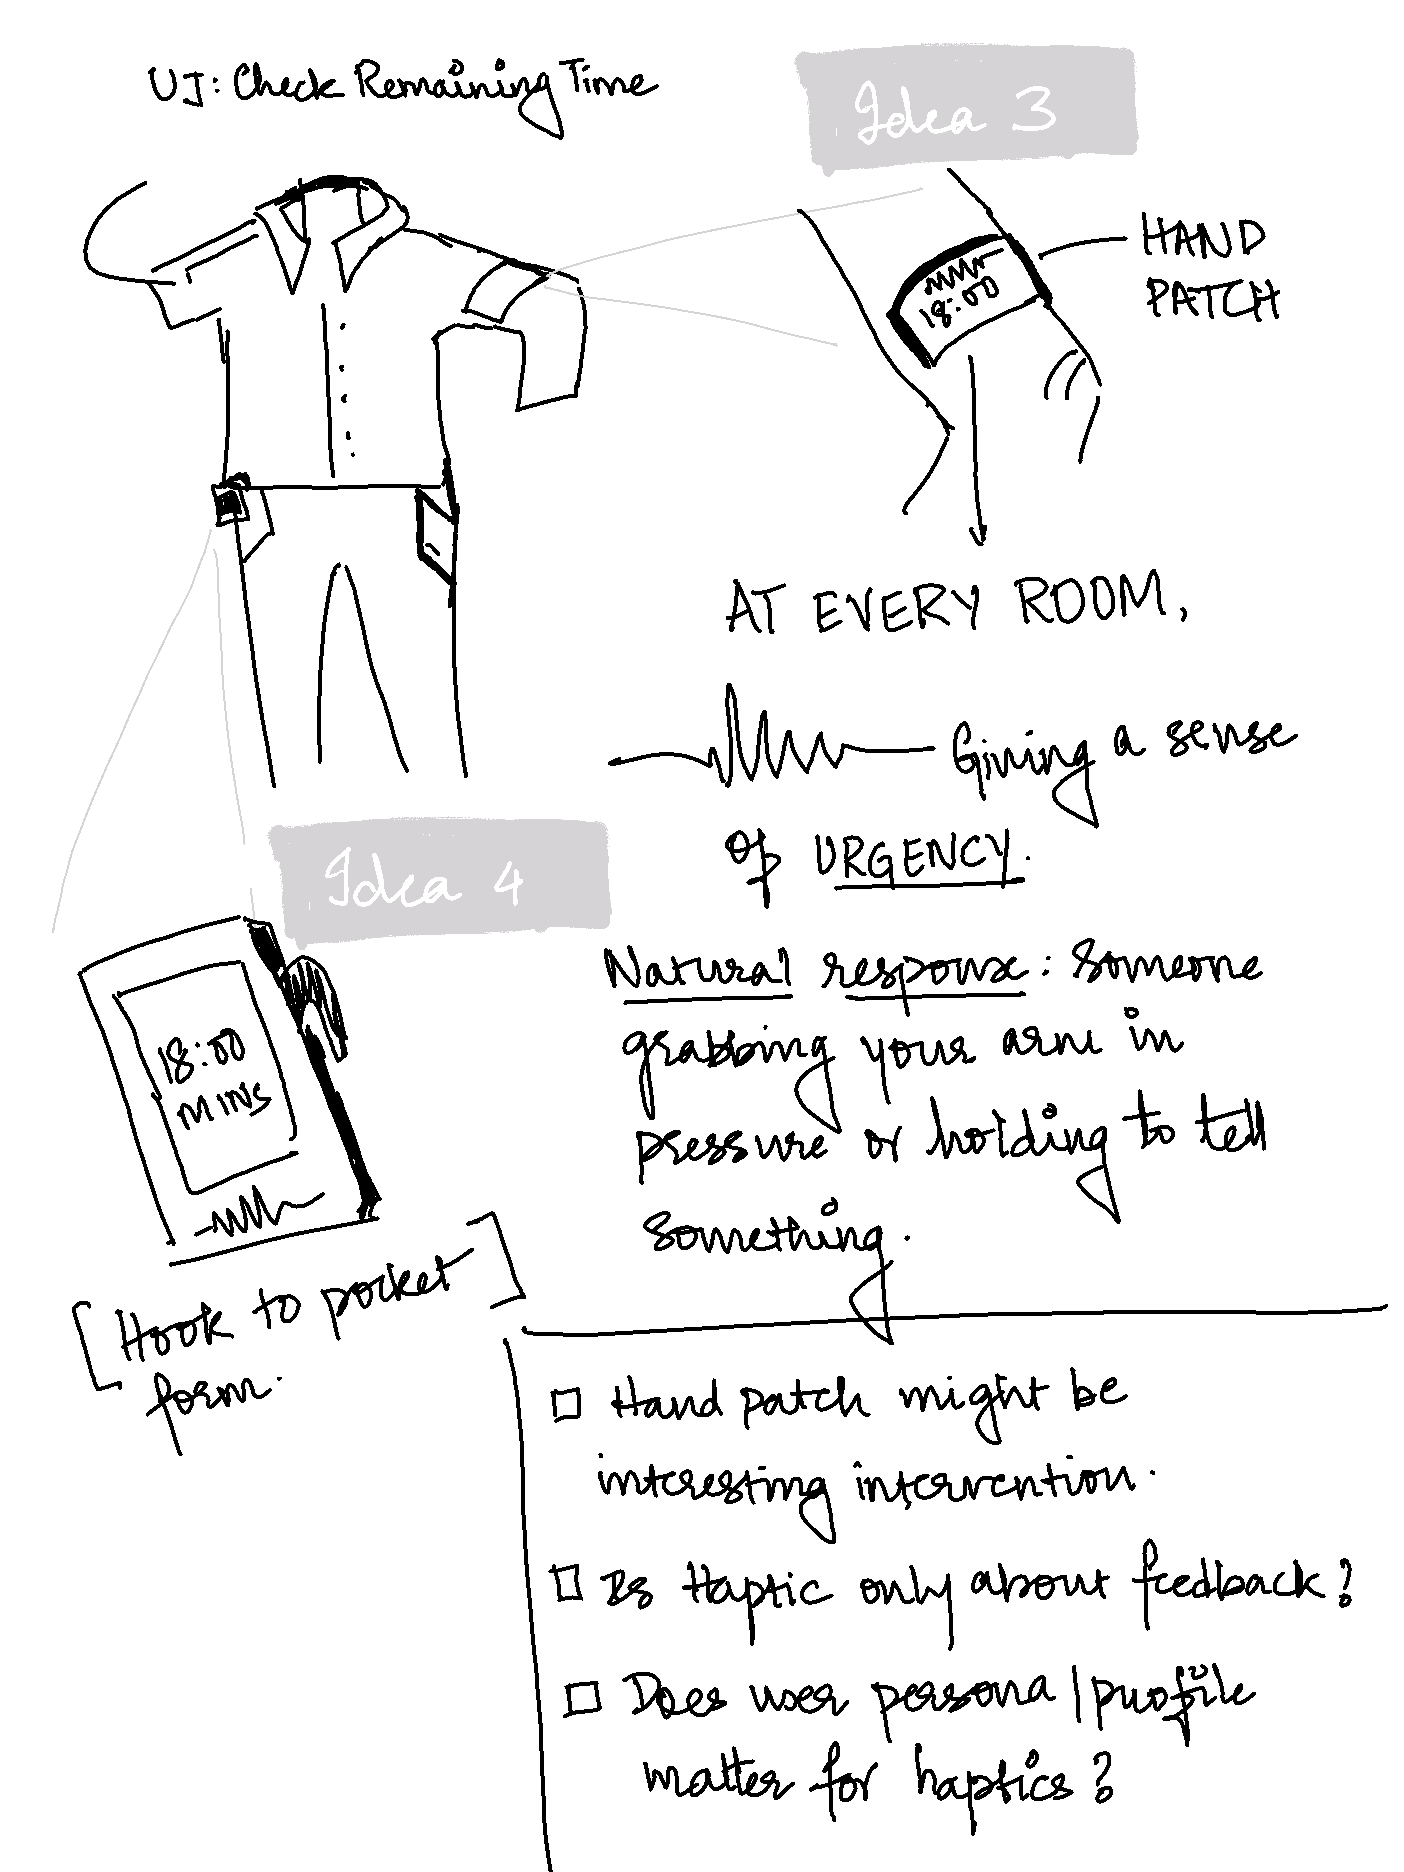 UJ: Check Remaining Time
Idea 3
HAND
PATCH
18:00
AT EVERY ROOM,
Giving a sense
of URGENCY.
Idea 4
18:00
MINS
[Hook to pocket
form.]
Natural response: Someone
grabbing your arm in
pressure or holding to tell
something.
□ Hand patch might be
interesting intervention.
□ Is Haptic only about feedback?
□ Does user persona/profile
matter for haptics?